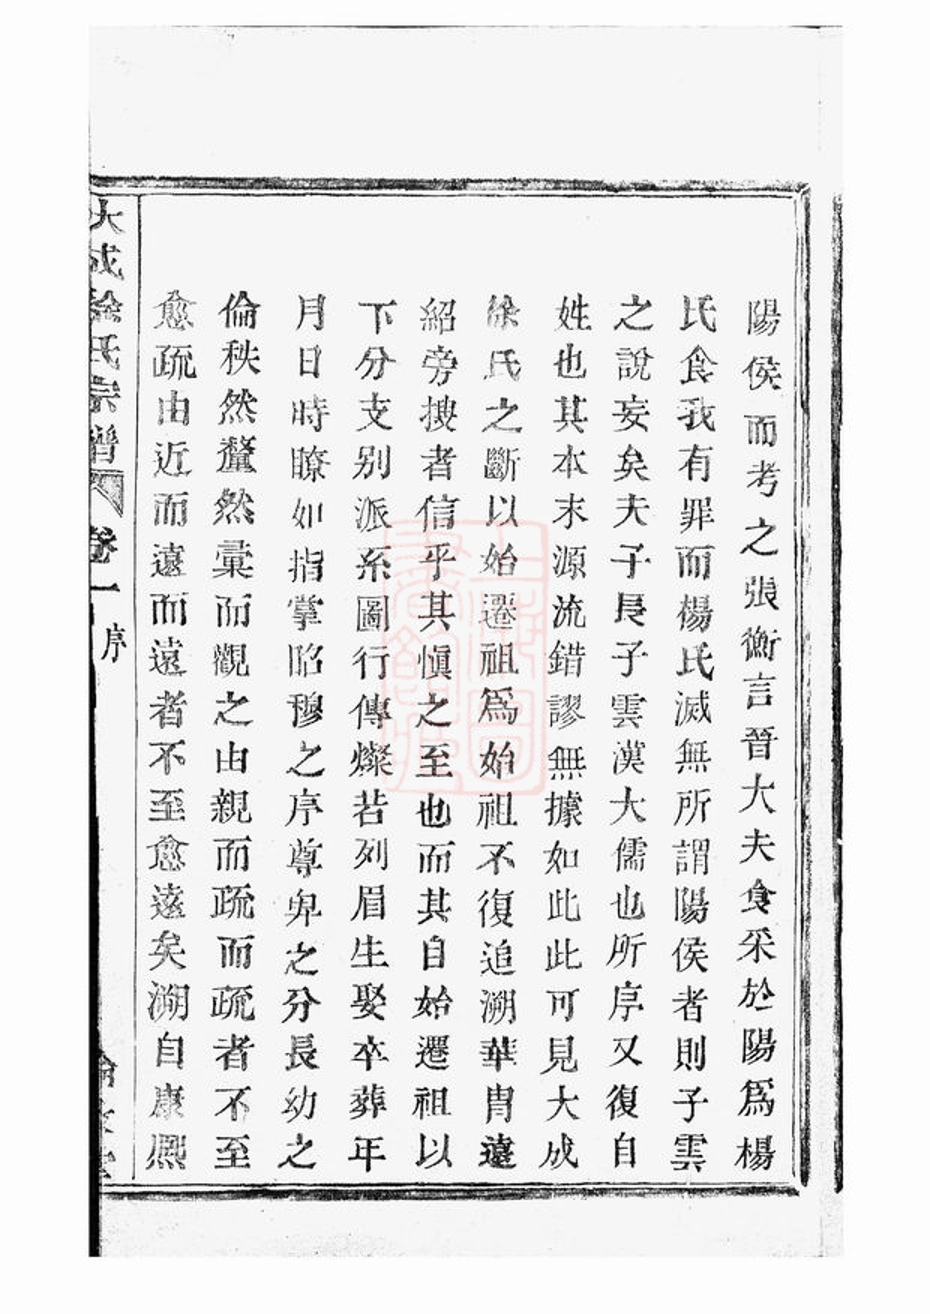 陽侯而考之張衡言晉大夫食采於陽爲楊
氏食我有罪而楊氏滅無所謂陽侯者則子雲
之說妄矣夫子長子雲漢大儒也所序又復自
姓也其本末源流錯謬無據如此此可見大成
徐氏之斷以始遷祖爲始祖不復追溯華胄遠
紹旁搜者信乎其愼之至也而其自始遷祖以
下分支别派系圖行傳燦若列眉生娶卒葬年
月日時瞭如指掌昭穆之序尊卑之分長幼之
倫秩然釐然彙而觀之由親而疏而疏者不至
愈疏由近而遠而遠者不至愈遠矣溯自康熙
大成徐氏宗譜 卷一 序
上海圖書館藏